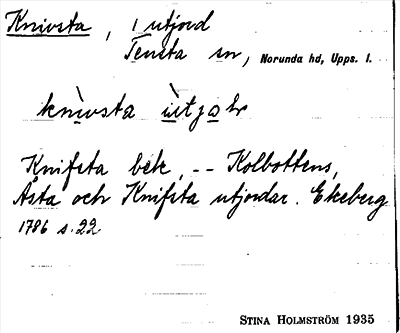 Knivsta, 1 utjord
Tensta sn, Norunda hd, Upps. l.
knìvsta ùtjor
Knifsta bek, -- Kolbottens,
Åsta och Knifsta utjordar. Ekeberg
1786 s. 22.
STINA HOLMSTRÖM 1935